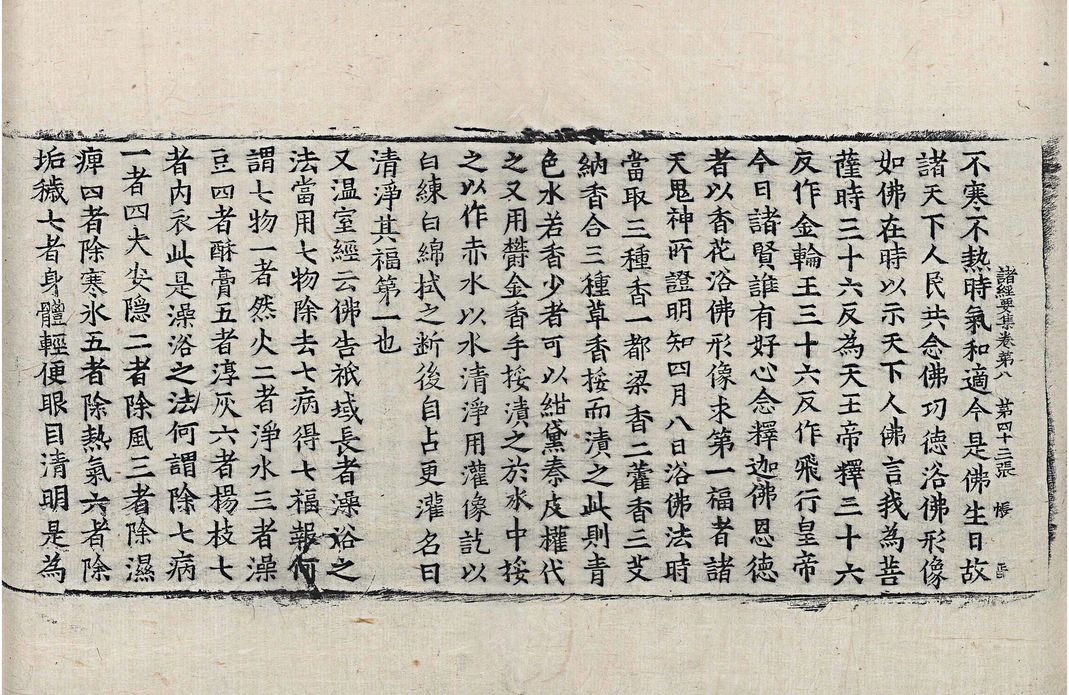 諸經要集卷第八 第四十三張 帳
不寒不熱時氣和適今是佛生日故
諸天下人民共念佛功德浴佛形像
如佛在時以示天下人佛言我為菩
薩時三十六反為天王帝釋三十六
反作金輪王三十六反作飛行皇帝
今日諸賢誰有好心念釋迦佛恩德
者以香花浴佛形像求第一福者諸
天鬼神所證明知四月八日浴佛法時
當取三種香一都梁香二藿香三艾
納香合三種草香挼而漬之此則青
色水若香少者可以紺黛秦皮權代
之又用欝金香手挼漬之於水中挼
之以作赤水以水清淨用灌像訖以
白練白綿拭之断後自占更灌名曰
清淨其福第一也
又温室經云佛告祇域長者澡浴之
法當用七物除去七病得七福報何
謂七物一者然火二者淨水三者澡
豆四者酥膏五者淳灰六者楊枝七
者內衣此是澡浴之法何謂除七病
一者四大安隱二者除風三者除濕
痺四者除寒氷五者除熱氣六者除
垢穢七者身體輕便眼目清明是為